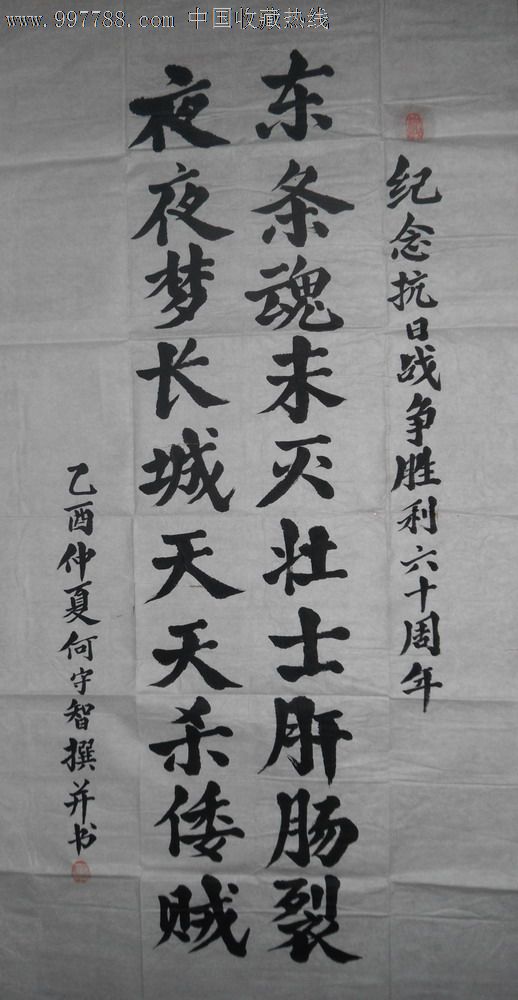 www.997788.com 中国收藏热线
纪念抗日战争胜利六十周年
东条魂未灭壮士肝肠裂
夜夜梦长城天天杀倭贼
乙酉仲夏何守智撰并书